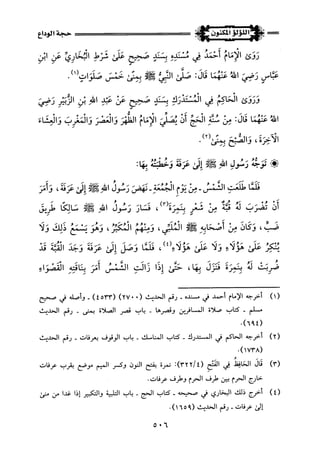 اللؤلؤ المكنون
حجة الوداع
رَوَى الْإِمَامُ أَحْمَدُ فِي مُسْنَدِهِ بِسَنَدٍ صَحِيحٍ عَلَى شَرْطِ الْبُخَارِيِّ عَنِ ابْنِ
عَبَّاسٍ رَضِيَ اللهُ عَنْهُمَا قَالَ: صَلَّى النَّبِيُّ ﷺ بِمِنًى خَمْسَ صَلَوَاتٍ(١).
وَرَوَى الْحَاكِمُ فِي الْمُسْتَدْرَكِ بِسَنَدٍ صَحِيحٍ عَنْ عَبْدِ اللهِ بْنِ الزُّبَيْرِ رَضِيَ
اللهُ عَنْهُمَا قَالَ: مِنْ سُنَّةِ الْحَجِّ أَنْ يُصَلِّيَ الْإِمَامُ الظُّهْرَ وَالْعَصْرَ وَالْمَغْرِبَ وَالْعِشَاءَ
الْآخِرَةَ، وَالصُّبْحَ بِمِنًى(٢).
❋ تَوَجُّهُ رَسُولِ اللهِ ﷺ إِلَى عَرَفَةَ وَخُطْبَتُهُ بِهَا:
فَلَمَّا طَلَعَتِ الشَّمْسُ ـ مِنْ يَوْمِ الْجُمُعَةِ ـ نَهَضَ رَسُولُ اللهِ ﷺ إِلَى عَرَفَةَ، وَأَمَرَ
أَنْ تُضْرَبَ لَهُ قُبَّةٌ مِنْ شَعْرٍ بِنَمِرَةَ(٣)، فَسَارَ رَسُولُ اللهِ ﷺ سَالِكًا طَرِيقَ
ضَبٍّ، وَكَانَ مِنْ أَصْحَابِهِ ﷺ الْمُلَبِّي، وَمِنْهُمُ الْمُكَبِّرُ، وَهُوَ يَسْمَعُ ذَلِكَ وَلَا
يُنْكِرُ عَلَى هَؤُلَاءِ وَلَا عَلَى هَؤُلَاءِ(٤)، فَلَمَّا وَصَلَ إِلَى عَرَفَةَ وَجَدَ الْقُبَّةَ قَدْ
ضُرِبَتْ لَهُ بِنَمِرَةَ فَنَزَلَ بِهَا، حَتَّى إِذَا زَالَتِ الشَّمْسُ أَمَرَ بِنَاقَتِهِ الْقَصْوَاءِ
(١) أخرجه الإمام أحمد في مسنده ـ رقم الحديث (٢٧٠٠) ـ (٤٥٣٣) ـ وأصله في صحيح
مسلم ـ كتاب صلاة المسافرين وقصرها ـ باب قصر الصلاة بمنى ـ رقم الحديث
(٦٩٤)
(٢) أخرجه الحاكم في المستدرك ـ كتاب المناسك ـ باب الوقوف بعرفات ـ رقم الحديث
(١٧٣٨)
(٣) قَالَ الْحَافِظُ فِي الْفَتْحِ (٣٢٢/٤): نمرة بفتح النون وكسر الميم موضع بقرب عرفات
خارج الحرم بين طرف الحرم وطرف عرفات.
(٤) أخرج ذلك البخاري في صحيحه ـ كتاب الحج ـ باب التلبية والتكبير إذا غدا من منى
إلى عرفات ـ رقم الحديث (١٦٥٩)
٥٠٦